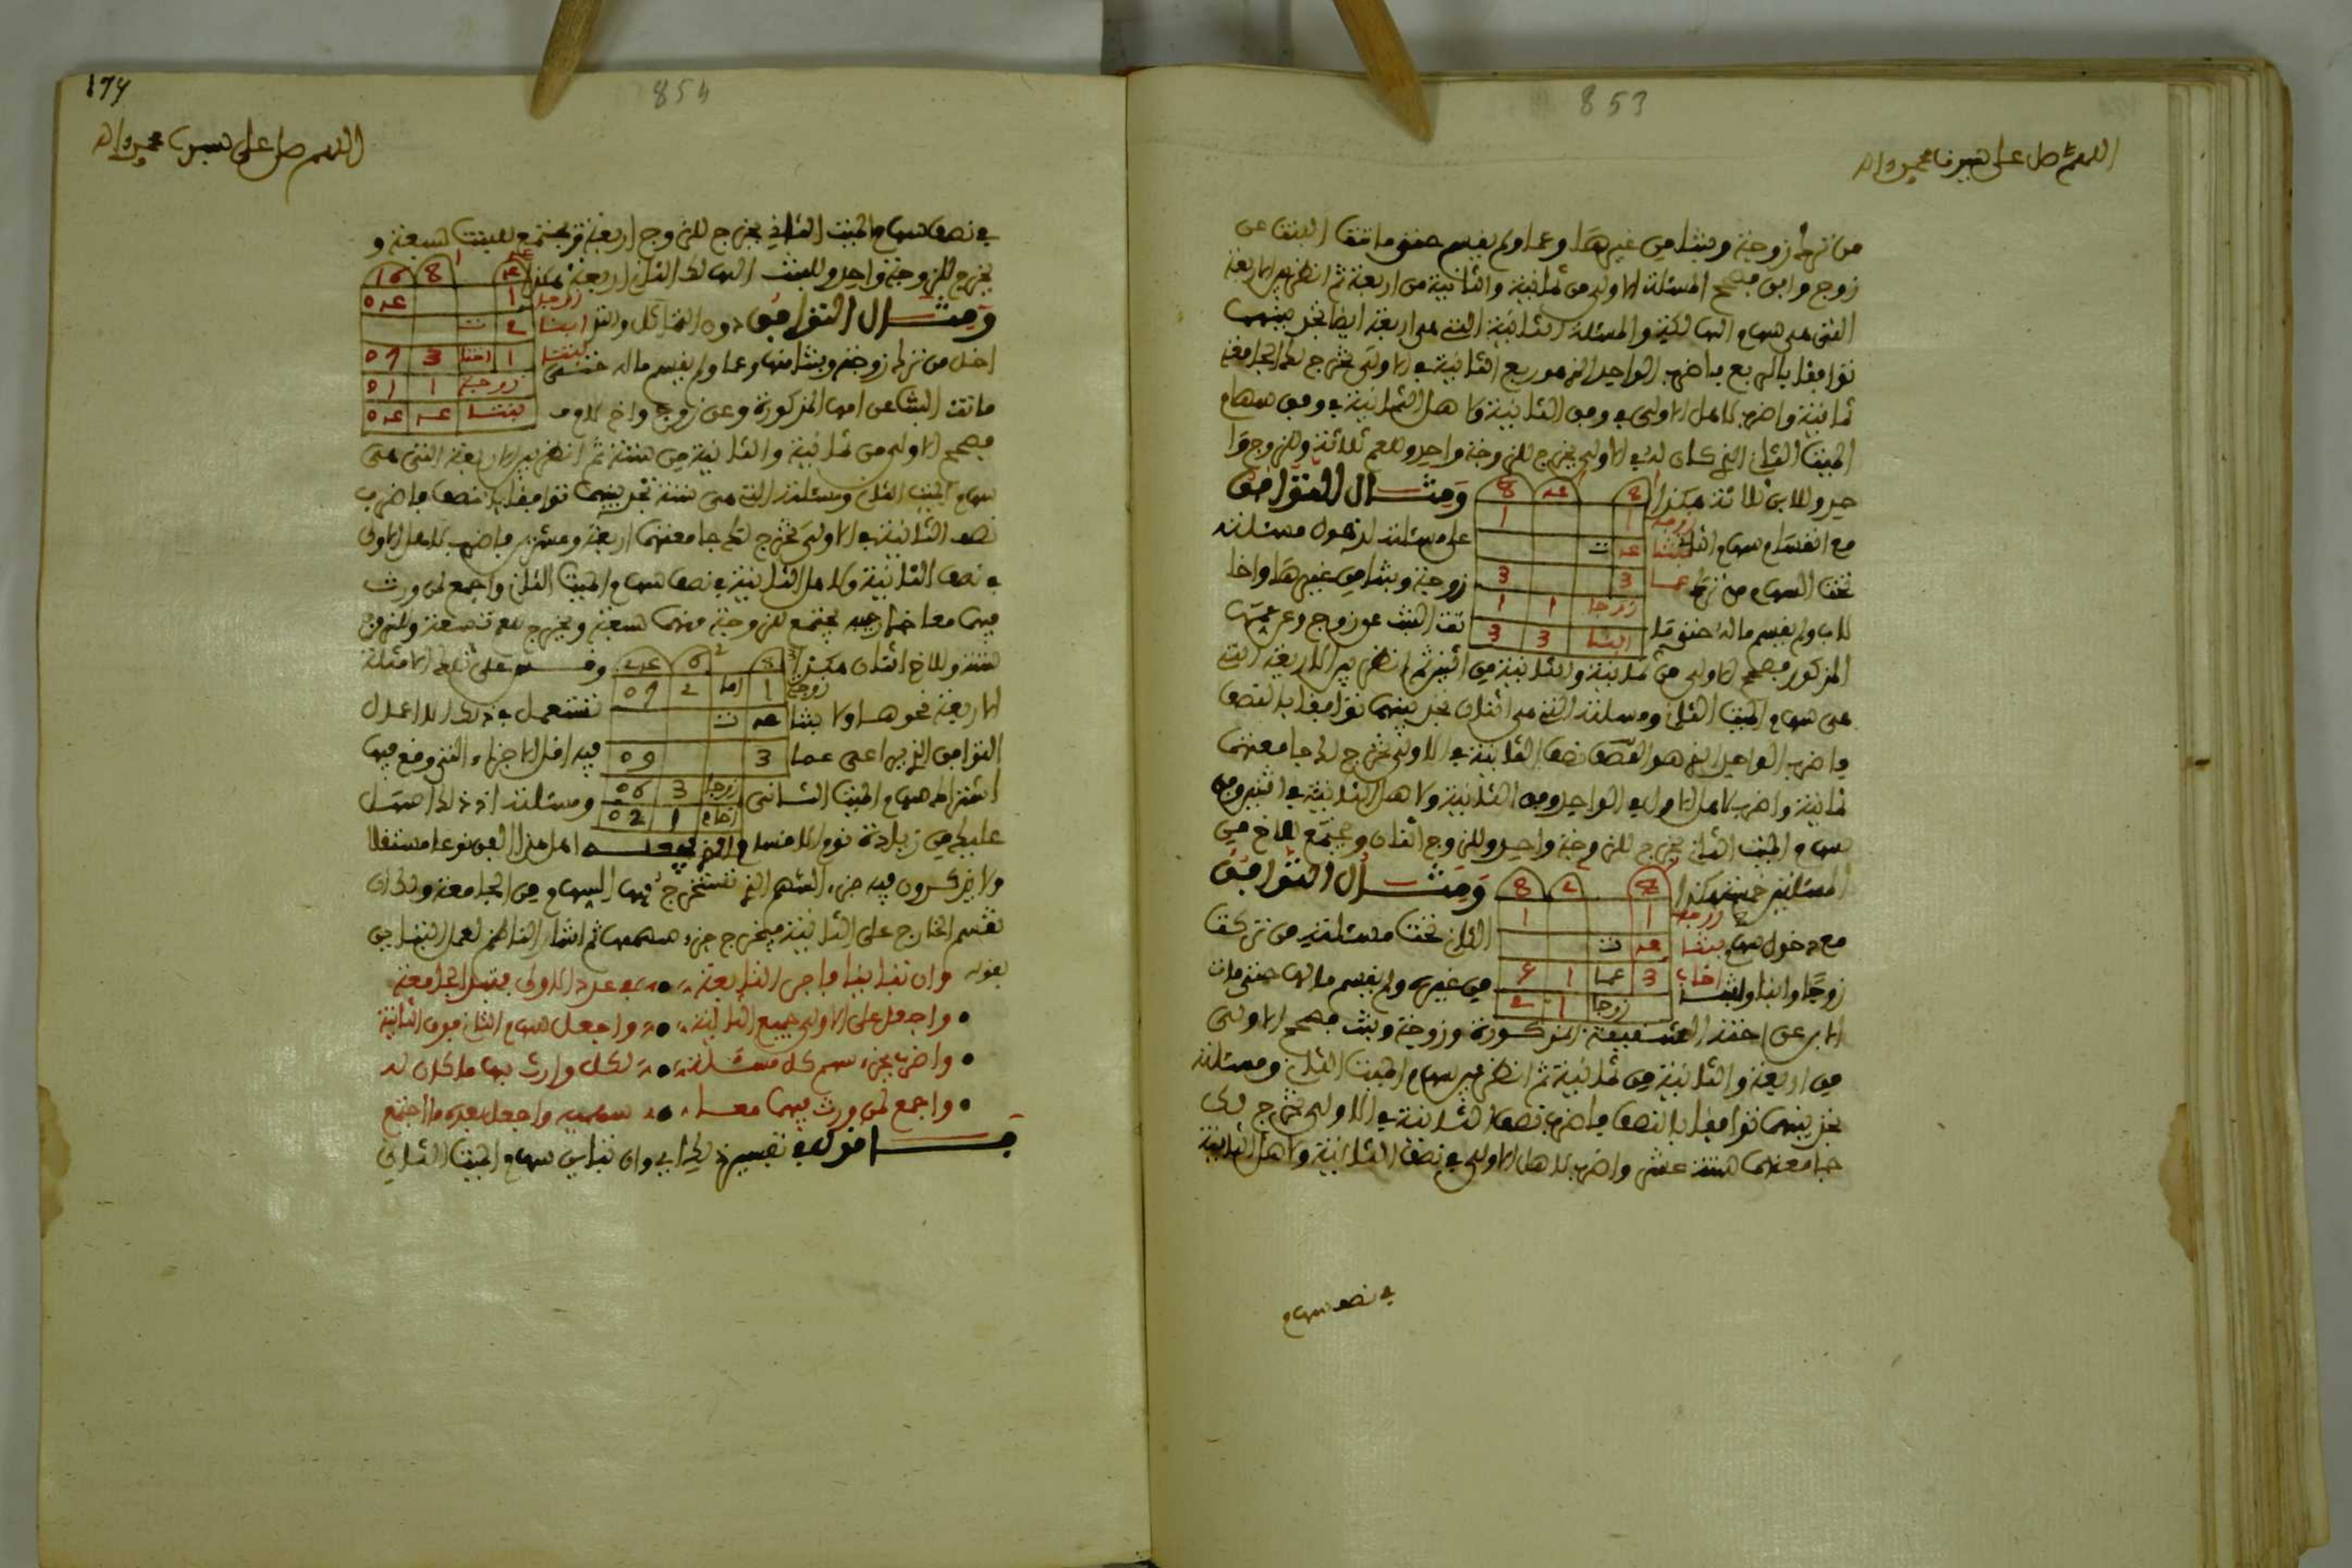 853
اللهم صل على سيدنا محمد واله
من ترك زوجة وبنتا من غيرها وعما ولم يقسم حتى ماتت البنت عن
زوج وابن فتصح المسئلة الاولى من ثمانية والثانية من اربعة ثم انظر بين الاربعة
التي هي سهام الهالكة والمسئلة الثانية التي هي اربعة ايضا تجد بينهما
توافقا بالربع فاضرب الواحد الذي هو ربع الثانية في الاولى تخرج لك الجامعة
ثمانية واضرب كامل الاولى في وفق الثانية وكامل الثانية في وفق سهام
الميت الثاني الذي كان له في الاولى يخرج للزوجة واحد وللعم ثلاثة وللزوج وا
حد وللابن ثلاثة هكذا
8 عـ 8
ومثال التوافق
زوجة 1 1
مع انقسام سهام الثاني
بنتا عـ ت
على مسئلته لدخول مسئلته
تحت السهام من ترك
عما 3 3
زوجة وبنتا من غيرها واخا
زوجا 1 1
للاب ولم يقسم ماله حتى ما
ابنا 3 3
تت البنت عن زوج وعن عمها
المذكور فتصح الاولى من ثمانية والثانية من اثنين ثم انظر بين الاربعة التي
هي سهام الميت الثاني ومسئلته التي هي اثنان تجد بينهما توافقا بالنصف
فاضرب الواحد الذي هو نصف الثانية في الاولى تخرج لك جامعتهما
ثمانية واضرب كامل الاولى في الواحد وفق الثانية وكامل الثانية في اثنين وفق
سهام الميت الثاني يخرج للزوجة واحد وللزوج اثنان ويجتمع للاخ من
المسئلتين خمسة هكذا
8 2 8
ومثال التوافق
زوجة 1 1
مع دخول سهام
بنتا عـ ت
الثاني تحت مسئلته من تركت
اخا 3 عما 1
زوجا وابنا وبنتا
من غيره ولم يقسم مالها حتى مات
زوجا 1 2
الابن عن اخته الشقيقة المذكورة وزوجة وبنت فتصح الاولى
من اربعة والثانية من ثمانية ثم انظر بين سهام الميت الثاني ومسئلته
تجد بينهما توافقا بالنصف فاضرب نصف الثانية في الاولى تخرج لك
جامعتهما ستة عشر واضرب كامل الاولى في نصف الثانية وكامل الثانية
في نصف سهام
854
اللهم صل على سيدنا محمد واله
في نصف سهام الميت الثاني يخرج للزوج اربعة ويجتمع للبنت سبعة و
يخرج للزوجة واحد وللبنت الهالك الثاني اربعة هكذا
عـ 8 16
زوجا 1 عـ 0
ومثال التوافق دون التماثل والتد
ابنا 2 ت
اخل من ترك زوجة وبنتا منها وعما ولم يقسم ماله حتى
بنتا 1 اختا 3 07
زوجة 1 01
ماتت البنت عن امها المذكورة وعن زوج واخ لام
بنتا عـ عـ 0
فتصح الاولى من ثمانية والثانية من ستة ثم انظر بين الاربعة التي هي
سهام الميت الثاني ومسئلته التي هي ستة تجد بينهما توافقا بالنصف فاضرب
نصف الثانية في الاولى تخرج لك جامعتهما اربعة وعشرين فاضرب كامل الاولى
في نصف الثانية وكامل الثانية في نصف سهام الميت الثاني واجمع لمن ورث
فيهما معا خارجيه يجتمع للزوجة منهما سبعة ويخرج للعم تسعة وللزوج
ستة وللاخ اثنان هكذا
8 6 2عـ
وقس على تلك الامثلة
زوجة 1 اما 2 07
الاربعة نحوها ولا
بنتا عـ ت
تستعمل في ذلك الاعمال
التوافق الذي يراعى
عما 3 09
فيه اقل الاجزاء التي وقع فيها
زوجا 3 06
اشتراك سهام الميت الثاني
ومسئلته اذ ذلك اسهل
اخا م 1 02
عليك من زيادة نوع الانقسام الذي يجعله اهل هذا الفن نوعا مستقلا
ولا يذكرون فيه جزء السهم الذي تستخرج بهما السهام من الجامعة ولك ان
تقسم الخارج على الثانية فيخرج جزء سهمها ثم اشار الناظم لعمل التباين
بقوله وان تباينا فاجر التابعة في عدد الاولى فتبدو الجامعة
واجعل على الاولى جميع الثانية واجعل سهام الثاني فوق الثانية
واضرب بجزء سهم كل مسئلة لكل وارث بها ما كان له
واجمع لمن ورث فيهما معا سهميه واجعل بعده ما اجتمع
فاقول في تفسير ذلك اي وان تباين سهام الميت الثاني